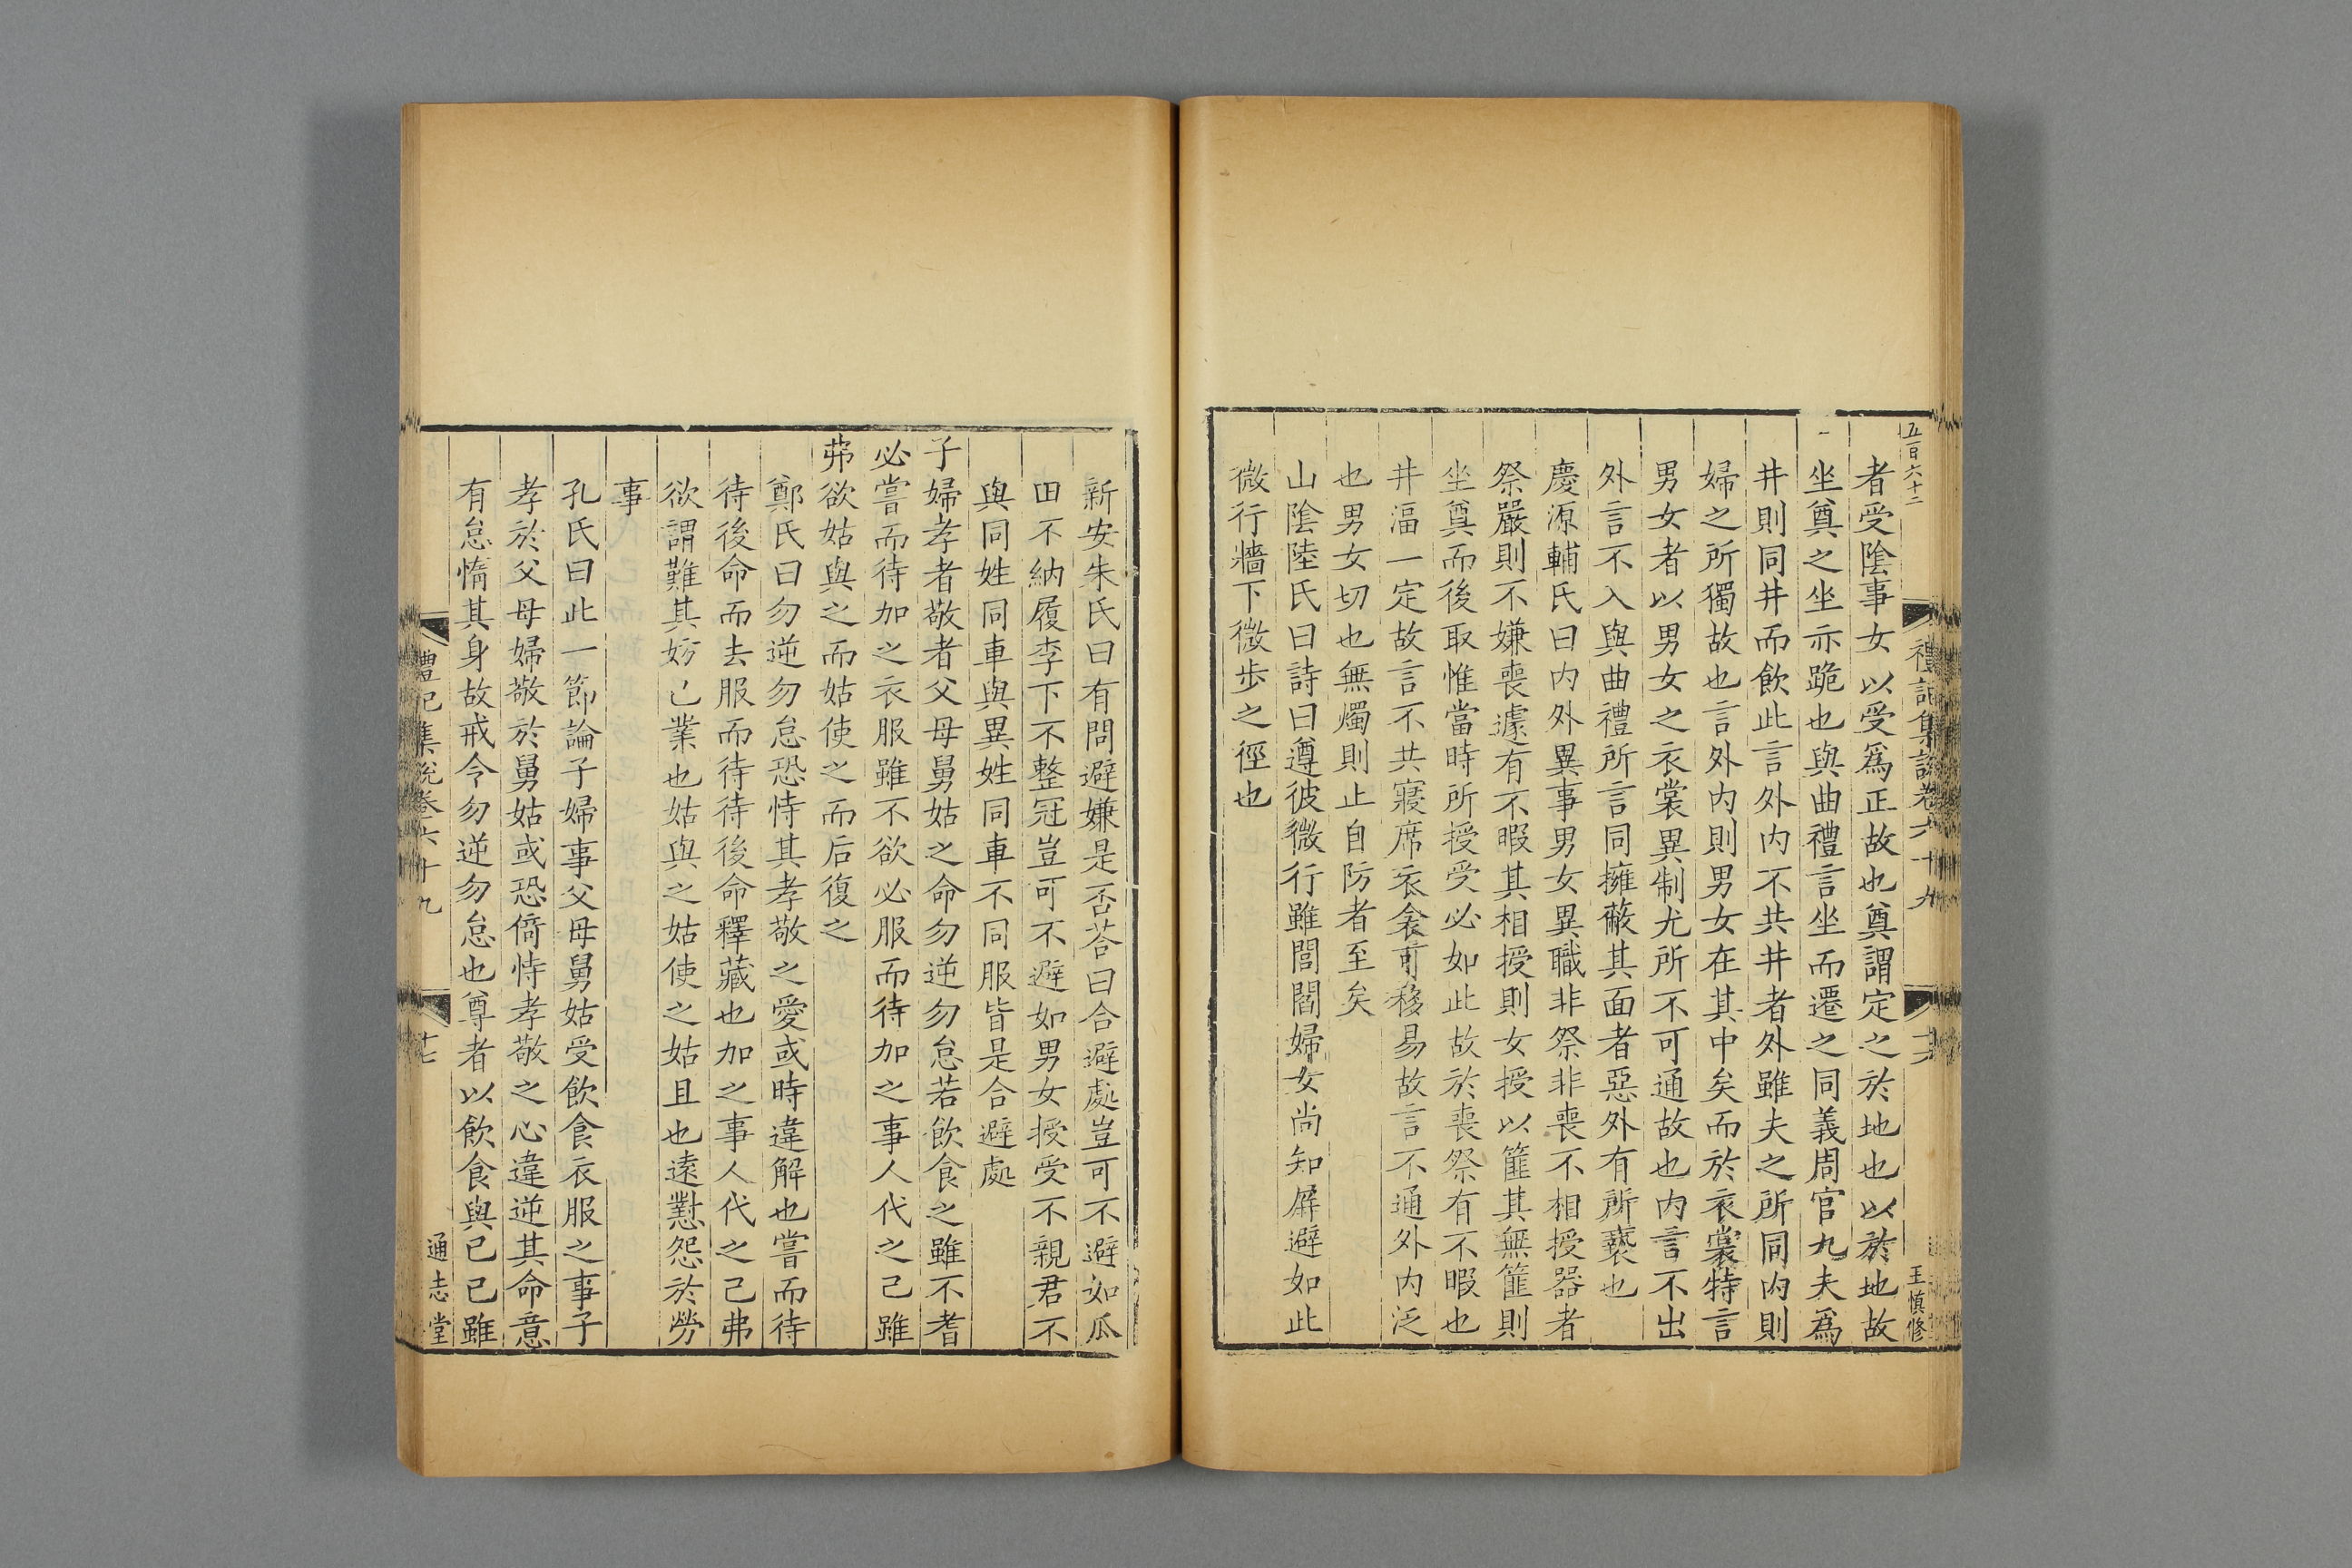 五百六十二
禮記集說卷六十九
十六
王慎修
者受陰事女以受爲正故也奠謂定之於地也以於地故
坐奠之坐亦跪也與曲禮言坐而遷之同義周官九夫爲
井則同井而飲此言外内不共井者外雖夫之所同内則
婦之所獨故也言外内則男女在其中矣而於衣裳特言
男女者以男女之衣裳異制尤所不可通故也内言不出
外言不入與曲禮所言同擁蔽其面者惡外有所褻也
慶源輔氏曰内外異事男女異職非祭非喪不相授器者
祭嚴則不嫌喪遽有不暇其相授則女授以篚其無篚則
坐奠而後取惟當時所授受必如此故於喪祭有不暇也
井湢一定故言不共寢席衣衾可移易故言不通外内泛
也男女切也無燭則止自防者至矣
山陰陸氏曰詩曰遵彼微行雖閭閻婦女尚知屏避如此
微行牆下微步之徑也
新安朱氏曰有問避嫌是否荅曰合避處豈可不避如瓜
田不納履李下不整冠豈可不避如男女授受不親君不
與同姓同車與異姓同車不同服皆是合避處
子婦孝者敬者父母舅姑之命勿逆勿怠若飲食之雖不耆
必嘗而待加之衣服雖不欲必服而待加之事人代之己雖
弗欲姑與之而姑使之而后復之
鄭氏曰勿逆勿怠恐恃其孝敬之愛或時違解也嘗而待
待後命而去服而待待後命釋藏也加之事人代之己弗
欲謂難其妨己業也姑與之姑使之姑且也遠懟怨於勞
事
孔氏曰此一節論子婦事父母舅姑受飲食衣服之事子
孝於父母婦敬於舅姑或恐倚恃孝敬之心違逆其命意
有怠惰其身故戒令勿逆勿怠也尊者以飲食與己己雖
禮記集說卷六十九
十七
通志堂